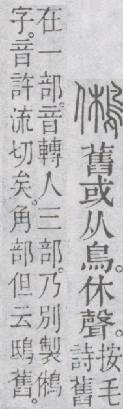 鵂舊或从鳥。休聲。
按毛
詩舊
在一部。音轉入三部。乃別製鵂
字。音許流切矣。角部但云鴟舊。